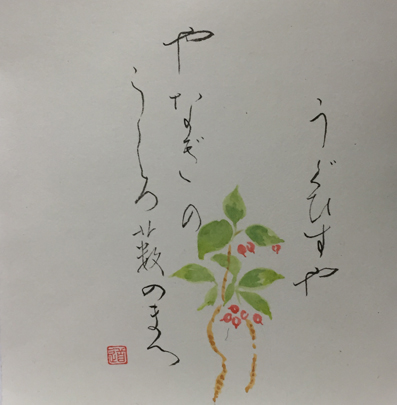 うぐひすや
やなぎの
うしろ薮のまへ